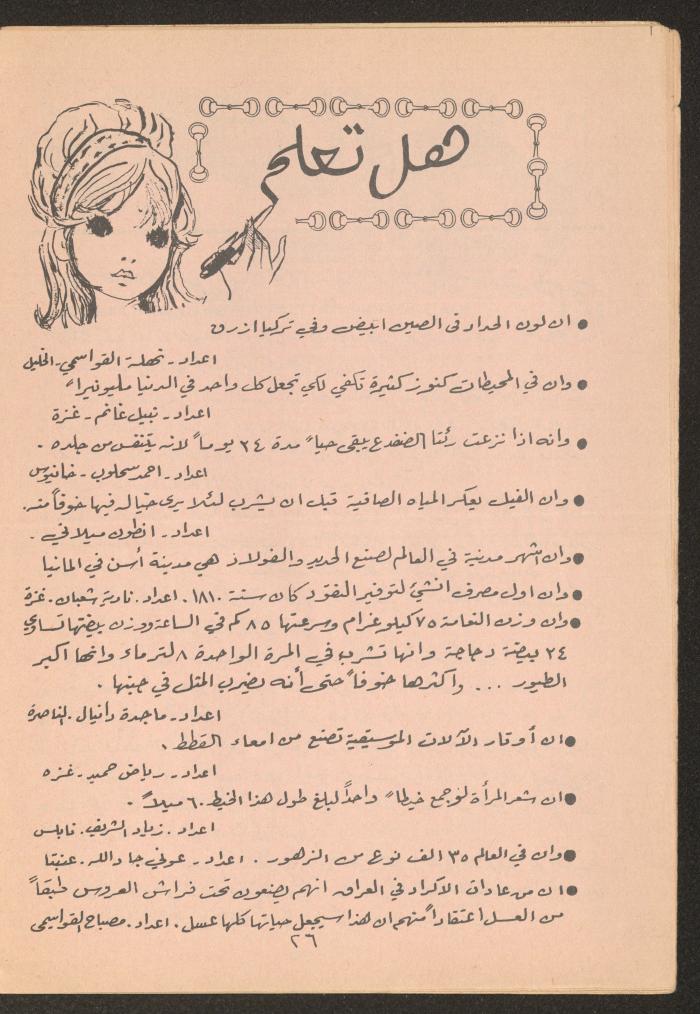 هل تعلم
● ان لون الحداد في الصين ابيض وفي تركيا ازرق
اعداد - نهلة القواسمي - الخليل
● وان في المحيطات كنوز كثيرة تكفي لكي تجعل كل واحد في الدنيا مليونيراً
اعداد - نبيل غانم - غزة
● وانه اذا نزعت رئتا الضفدع يبقى حياً مدة ٢٤ يوماً لانه يتنفس من جلده .
اعداد - احمد سحلوب - خانيونس
● وان الفيل يعكر المياه الصافية قبل ان يشرب لئلا يرى خياله فيها خوفاً منه .
اعداد - انطون ميلاني .
● وان اشهر مدينة في العالم لصنع الحديد والفولاذ هي مدينة أسن في المانيا
● وان اول مصرف انشئ لتوفير النقود كان سنة ١٨١٠ . اعداد . نادية شعبان . غزة
● وان وزن النعامة ٧٥ كيلوغرام وسرعتها ٨٥ كم في الساعة ووزن بيضتها تساوي
٢٤ بيضة دجاجة وانها تشرب في المرة الواحدة ٨ لتر ماء وانها اكبر
الطيور ... واكثرها خوفاً حتى أنه يضرب المثل في جبنها .
اعداد - ماجدة دانيال . الناصرة
● ان أوتار الآلات الموسيقية تصنع من امعاء القطط .
اعداد - رياض حميد - غزه
● ان شعر المرأة لو جمع خيطاً واحداً لبلغ طول هذا الخيط ٦٠ ميلاً .
اعداد . زياد الشريف . نابلس
● وان في العالم ٣٥ الف نوع من الزهور . اعداد - عوني جادالله . عنبتا
● ان من عادات الاكراد في العراق انهم يضعون تحت فراش العروس طبقاً
من العسل اعتقاداً منهم ان هذا سيجعل حياتها كلها عسل . اعداد . مصباح القواسمي
٢٦